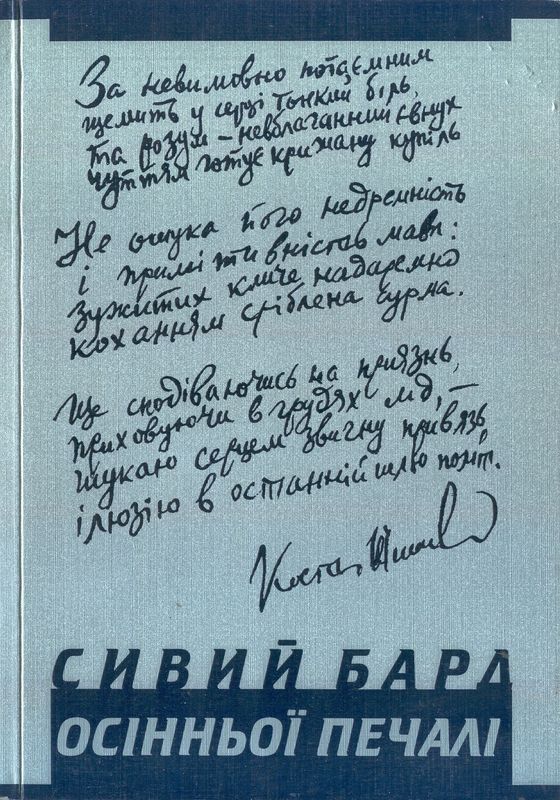 За невимовно потаємним
щемить у серці тонкий біль,
та розум – невблаганний євнух
чуттям готує крижану купіль
Не ошука його недремність
і примітивність мавп:
зужитих кличе надаремно
коханням срібленa сурма.
Ще сподіваючись на приязнь,
приховуючи в грудях лід, –
шукаю серцем звичну прив'язь,
ілюзію в останній шлю політ.
СИВИЙ БАРД
ОСІННЬОЇ ПЕЧАЛІ